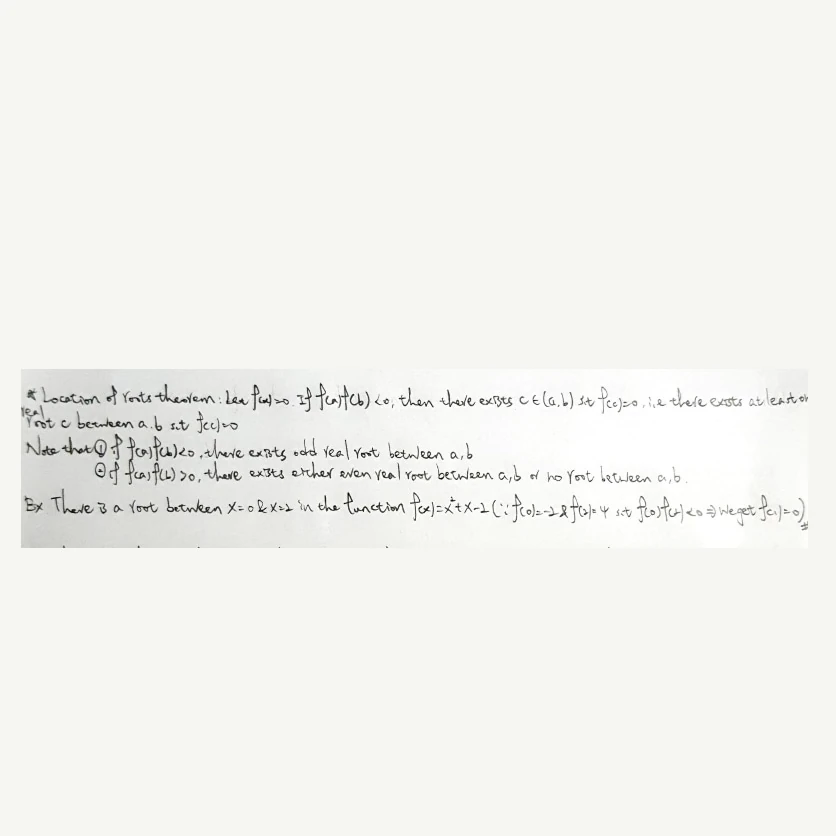 * Location of roots theorem: Let f(x)=0. If f(a)f(b)<0, then there exists c∈(a,b) st f(c)=0, i.e there exists at least on
real root c between a.b s.t f(c)=0
Note that ① if f(a)f(b)<0, there exists odd real root between a,b
② if f(a)f(b)>0, there exists either even real root between a,b or no root between a,b.
Ex There is a root between x=0 & x=2 in the function f(x)=x²+x-2 (∵ f(0)=-2 & f(2)=4 s.t f(0)f(2)<0 ⇒ We get f(1)=0)